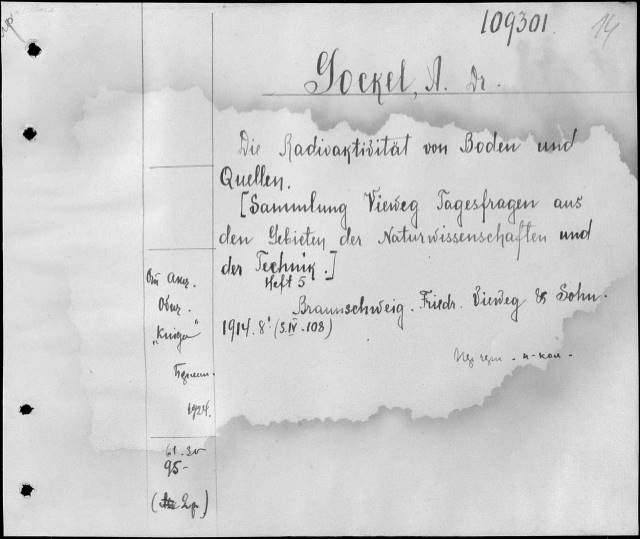 109301
14
Gockel, A. Dr.
Die Radioaktivität von Boden und
Quellen.
[Sammlung Vieweg Tagesfragen aus
den Gebieten der Naturwissenschaften und
der Technik.]
Heft 5
Braunschweig. Friedr. Vieweg & Sohn.
1914. 8° (S. IV - 108)
От Акц.
Общ.
„Книга"
Берлин.
1924.
61.30
95-